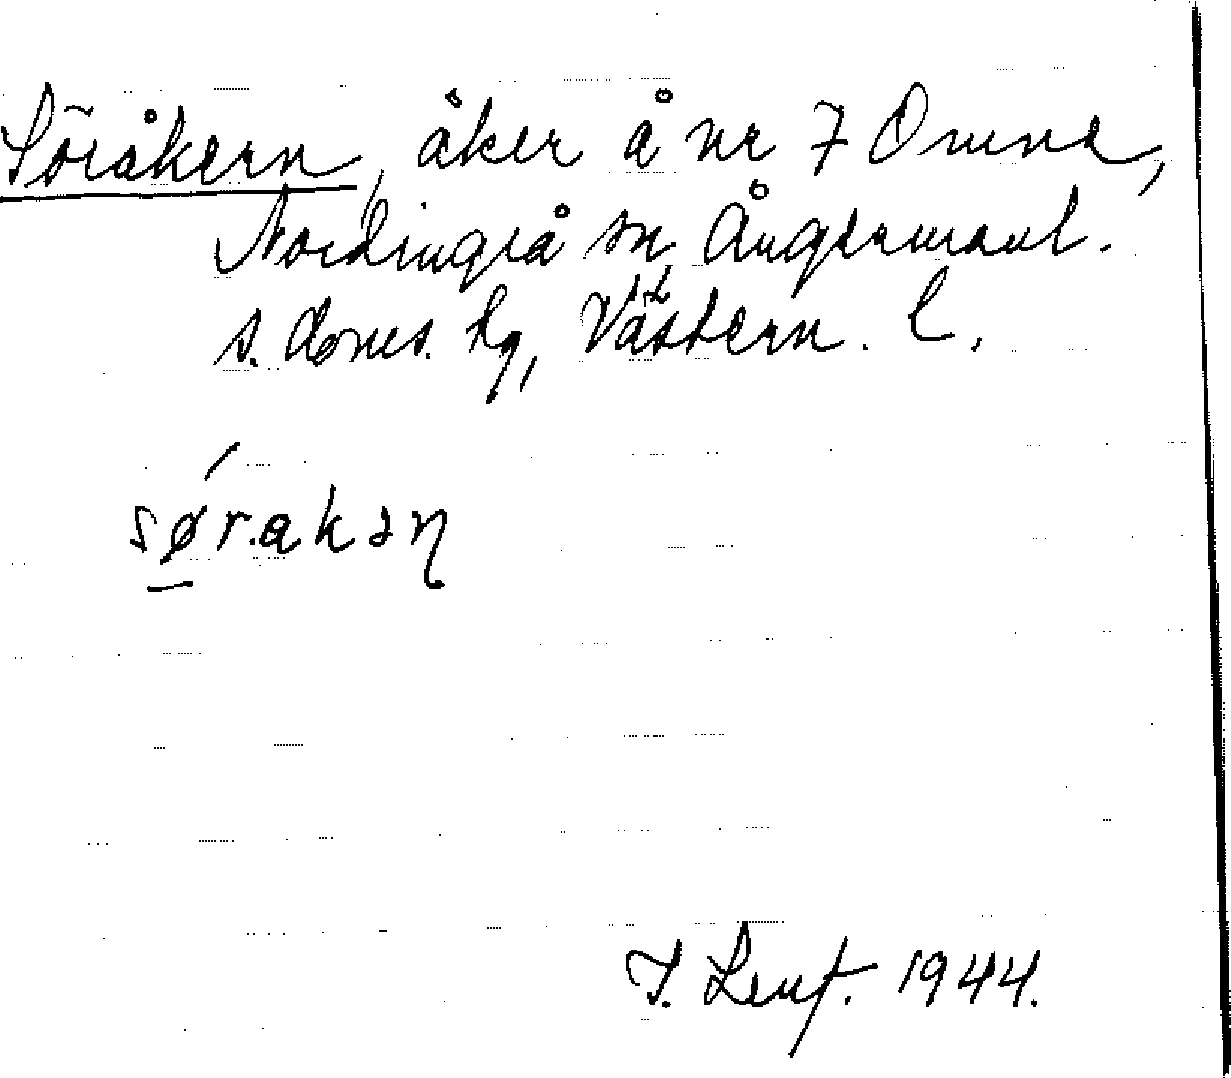 Söråkern, åker å nr 7 Omne,
Nordingrå sn Ångermanl.
s. doms. hg, Västern. l.
sør.akən
1944.